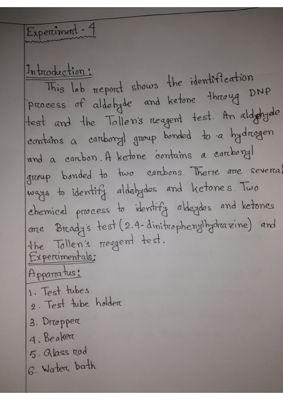 Experiment - 4
Introduction:
This lab report shows the identification
process of aldehyde and ketone throug DNP
test and the Tollen's reagent test. An aldehyde
contains a carbonyl group bonded to a hydrogen
and a carbon. A ketone contains a carbonyl
group bonded to two carbons. There are several
ways to identify aldehydes and ketones. Two
chemical process to identify aldeydes and ketones
are Brady's test (2.4-dinitrophenylhydrazine) and
the Tollen's reagent test.
Experimentals:
Apparatus:
1. Test tubes
2. Test tube holder
3. Dropper
4. Beaker
5. Glass rod
6. Water bath